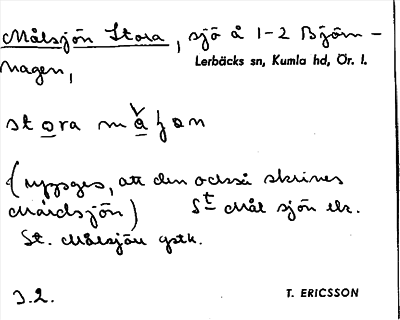 Målsjön Stora, sjö å 1-2 Björn-
hagen,
Lerbäcks sn, Kumla hd, Ör. l.
stora må̌ʃon
(uppges, att den också skrives
Mårdsjön) St Mål sjön elr.
St. Målsjön gstk.
3.2.
T. ERICSSON